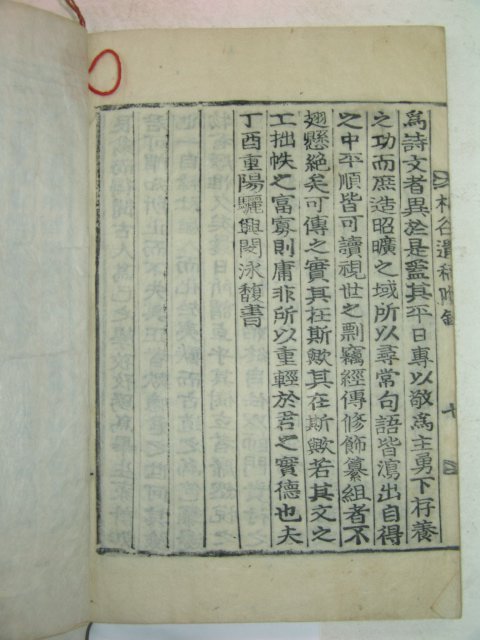 爲詩文者異於是盖其平日專以敬爲主勇下存養
之功而歷造昭曠之域所以尋常句語皆瀉出自得
之中平順皆可讀視世之剽竊經傳修飾纂組者不
翅懸絶矣可傳之實其在斯歟其在斯歟若其文之
工拙帙之富寡則庸非所以重輕於君之實德也夫
丁酉重陽驪興閔泳馥書
谷遺稿附錄